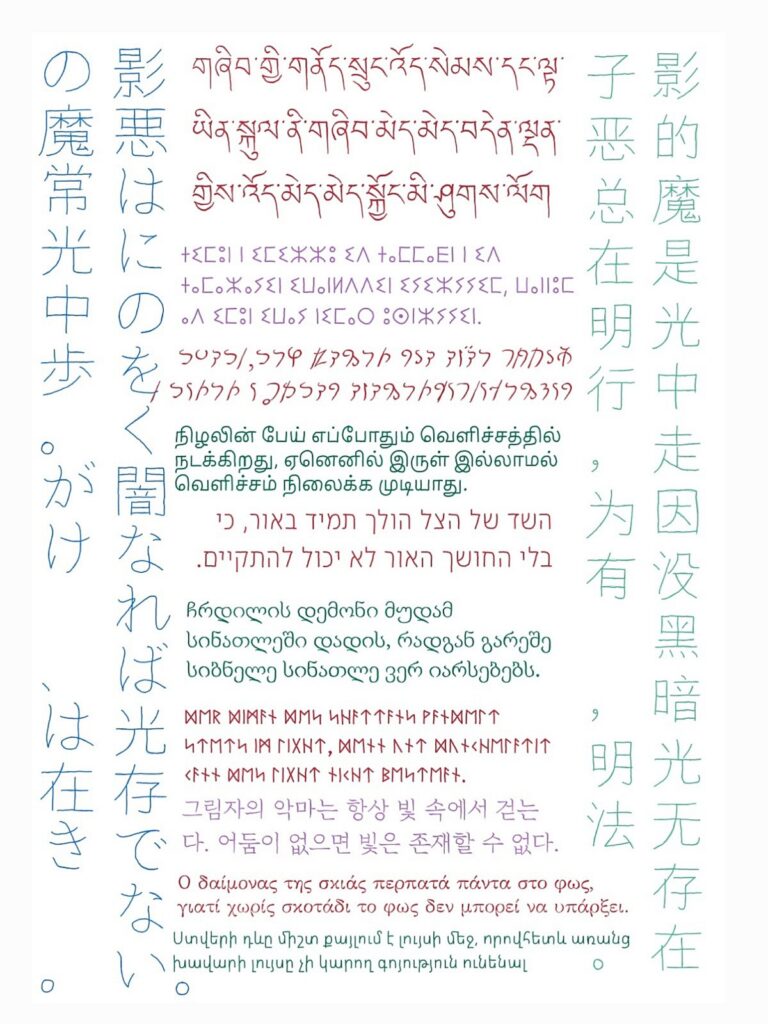 影悪はにのをく闇なれば光存でない。
の魔常光中歩。がけ、は在き。
གཞིབ་གྱི་གནོད་སྲུང་འོད་སེམས་དང་ལྟ་
ཡིན་སྐུལ་ནི་གཞིབ་མེད་མེད་བདེན་ལྡན་
གྱིས་འོད་མེད་མེད་སྐྱོང་མི་ཤུགས་ལོག
நிழலின் பேய் எப்போதும் வெளிச்சத்தில்
நடக்கிறது, ஏனெனில் இருள் இல்லாமல்
வெளிச்சம் நிலைக்க முடியாது.
השד של הצל הולך תמיד באור, כי
בלי החושך האור לא יכול להתקיים.
ჩრდილის დემონი მუდამ
სინათლეში დადის, რადგან გარეშე
სიბნელე სინათლე ვერ იარსებებს.
ᛞᛖᚱ ᛞᛁᛗᚨᚾ ᛞᛖᛋ ᛋᚺᚨᛏᛏᚨᚾᛋ ᚹᚨᚾᛞᛖᛚᛏ
ᛋᛏᛖᛏᛋ ᛁᛗ ᛚᛁᚷᚺᛏ, ᛞᛖᚾᚾ ᚢᚾᛏ ᛞᚢᚾᚲᚺᛖᛚᚨᛏᛁᛏ
ᚲᚨᚾᚾ ᛞᛖᛋ ᛚᛁᚷᚺᛏ ᚾᛁᚲᚺᛏ ᛒᛖᛋᛏᛖᚨᚾ.
그림자의 악마는 항상 빛 속에서 걷는
다. 어둠이 없으면 빛은 존재할 수 없다.
Ο δαίμονας της σκιάς περπατά πάντα στο φως,
γιατί χωρίς σκοτάδι το φως δεν μπορεί να υπάρξει.
Ստվերի դևը միշտ քայլում է լույսի մեջ, որովհետև առանց
խավարի լույսը չի կարող գոյություն ունենալ
影的魔是光中走因没黑暗光无存在
子恶总在明行，为有，明法。